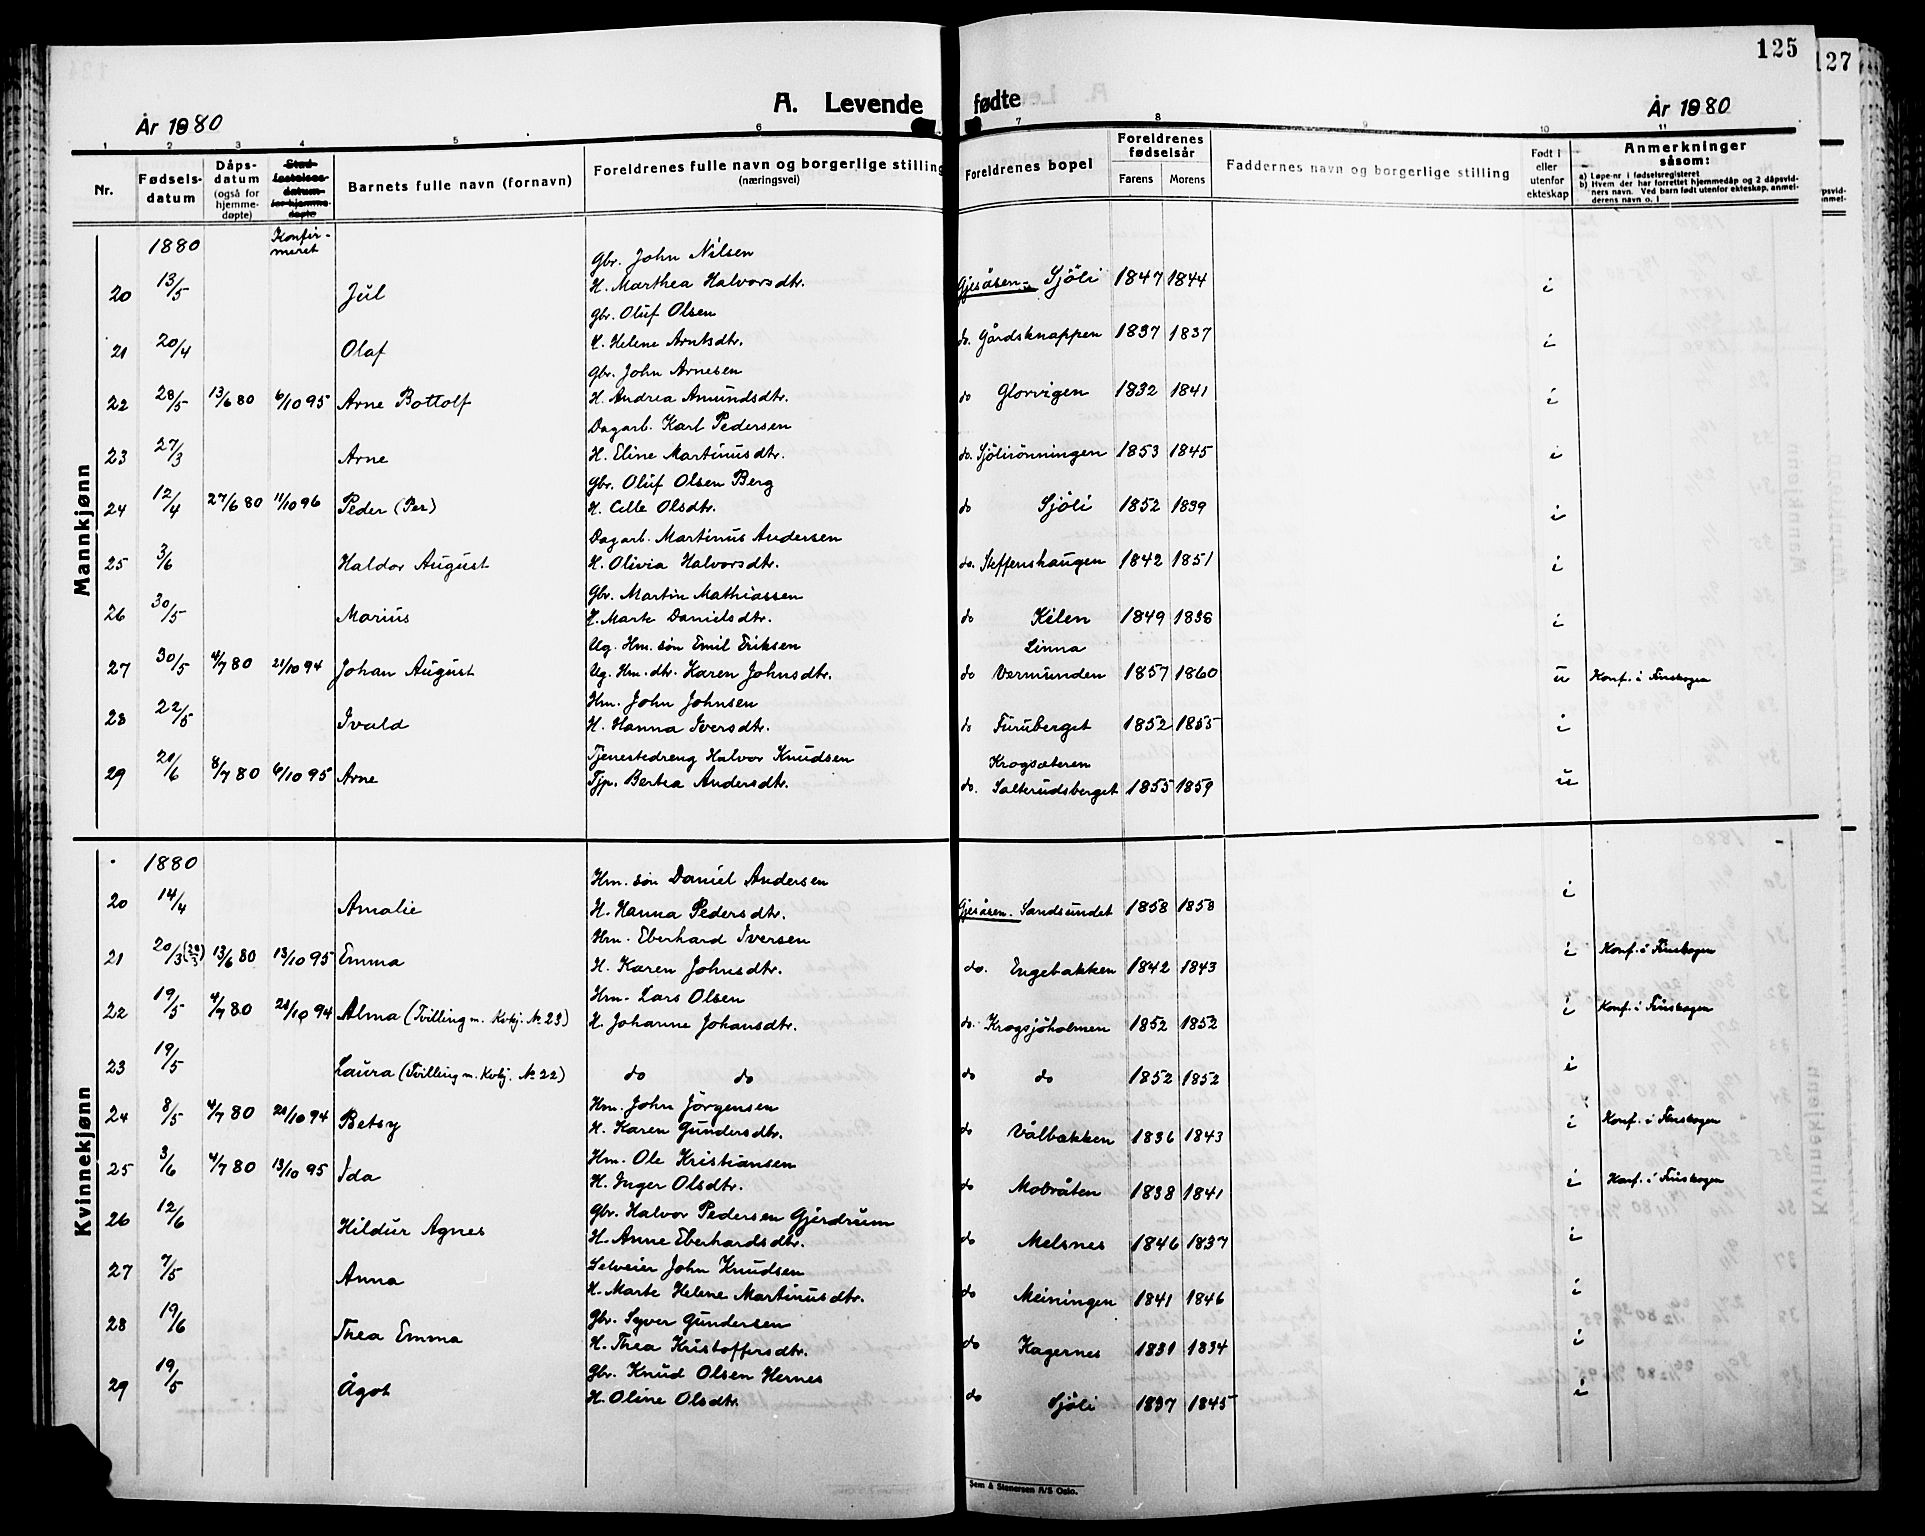 125
127
A. Levende fødte
År 1880
År 1880
1 2 3 4 5 6 7 8 9 10 11
Nr.
Fødsels-datum
Dåps-datum (også for hjemme-døpte)
Stad-festelses-datum for hjemme-døpte
Barnets fulle navn (fornavn)
Foreldrenes fulle navn og borgerlige stilling (næringsvei)
Foreldrenes bopel
Foreldrenes fødselsår
Farens Morens
Faddernes navn og borgerlige stilling
Født i eller utenfor ekteskap
Anmerkninger såsom:
a) Løpe-nr i fødselsregisteret
b) Hvem der har forrettet hjemmedåp og 2 dåpsvidners navn. Ved barn født utenfor ekteskap, anmelderens navn o. l
Mannkjønn
1880
Konfir-meret
Gbr. John Nilsen
20 13/5 Jul H. Marthea Halvorsdtr. Gjesåsen - Sjöli 1847 1844 i
Gbr. Oluf Olsen
21 20/4 Olaf H. Helene Arntsdtr. do. Gårdsknappen 1837 1837 i
Gbr. John Arnesen
22 28/5 13/6 80 6/10 95 Arne Bottolf H. Andrea Amundsdtr. do Glorvigen 1832 1841 i
Dagarb. Karl Pedersen
23 27/3 Arne H. Eline Martinusdtr. do. Sjölirönningen 1853 1845 i
Gbr. Oluf Olsen Berg
24 12/4 27/6 80 11/10 96 Peder (Per) H. Cille Olsdtr. do Sjöli 1852 1839 i
Dagarb. Martinus Andersen
25 3/6 Haldor August H. Olivia Halvorsdtr. do. Steffenshaugen 1842 1851 i
Gbr. Martin Mathiassen
26 30/5 Marius H. Marte Danielsdtr. do Kilen 1849 1836 i
Ug. Hm. søn Emil Eriksen Linna
27 30/5 4/7 80 21/10 94 Johan August Ug. Hm. dtr. Karen Johnsdtr. do Vermunden 1857 1860 u Konf. i Finskogen
Hm. John Johnsen
28 22/5 Ivald H. Hanna Iversdtr. do Furuberget 1852 1855 i
Tjenestedreng Halvor Knudsen Krogsæteren
29 20/6 8/7 80 6/10 95 Arne Tjp. Bertea Andersdtr. do. Salterudsberget 1855 1859 u
Kvinnekjønn
1880
Hm. søn Daniel Andersen
20 14/4 Amalie H. Hanna Pedersdtr. Gjesåsen. Sandsundet 1858 1858 i
Hm. Eberhard Iversen
21 20/3 (28/3) 13/6 80 13/10 95 Emma H. Karen Johnsdtr. do. Engebakken 1842 1843 i Konf. i Finskogen
Hm. Lars Olsen
22 19/5 4/7 80 28/10 94 Alma (Tvilling m. Kvkj. No 23) H. Johanne Johansdtr. do. Krogsjöholmen 1852 1852 i Konf. i Finskogen
23 19/5 Laura (Tvilling m. Kvkj. No 22) do do do do 1852 1852 i
Hm. John Jörgensen
24 8/5 4/7 80 28/10 94 Betsy H. Karen Gundersdtr. do Vålbakken 1836 1843 i Konf. i Finskogen
Hm. Ole Kristiansen
25 3/6 4/7 80 13/10 95 Ida H. Inger Olsdtr. do Mobråten 1838 1841 i Konf. i Finskogen
Gbr. Halvor Pedersen Gjerdrum
26 12/6 Hildur Agnes H. Anne Eberhardsdtr. do Melsnes 1846 1837 i
Selveier John Knudsen
27 7/5 Anna H. Marte Helene Martinusdtr. do Meiningen 1841 1846 i
Gbr. Syver Gundersen
28 19/6 Thea Emma H. Thea Kristoffersdtr. do Kagernes 1831 1834 i
Gbr. Knud Olsen Hernes
29 19/5 Ågot H. Oline Olsdtr. do Sjöli 1837 1845 i
Sem & Stenersen A/S Oslo.